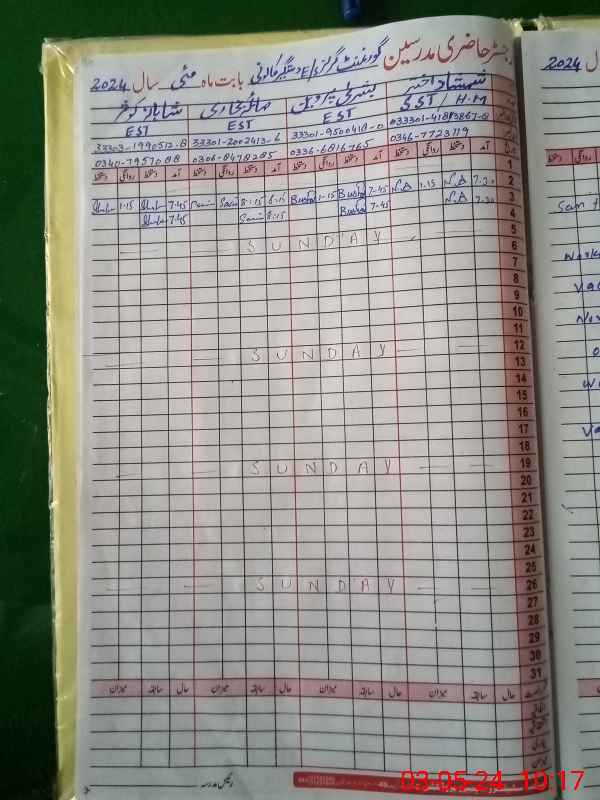 رجسٹر حاضری مدرسین گورنمنٹ گرلز E/S دستگیر کالونی بابت ماہ مئی سال 2024
شمشاد اختر بشریٰ پروین صائمہ بخاری شاہناز کوثر
SST / H.M EST EST EST
33301-9500418-0 33301-2002413-6 33303-1990512-8
0346-7723119 0336-6816765 0306-8478285 0340-7957088
دستخط روانگی دستخط آمد دستخط روانگی دستخط آمد دستخط روانگی دستخط آمد دستخط روانگی دستخط آمد
1
2 7-30 N.A 1.15 N.A 7-45 Bushra 1-15 Bushra 8:15 Saima 7-45 1-15
3 7-30 N.A 7-45 Bushra 8:15 Saima 7-45
4
5 SUNDAY
6
7
8
9
10
11
12 SUNDAY
13
14
15
16
17
18
19 SUNDAY
20
21
22
23
24
25
26 SUNDAY
27
28
29
30
31
حال سابقہ میزان حال سابقہ میزان حال سابقہ میزان حال سابقہ میزان
رئیس مدرسہ
2024
03-05-24 10:17